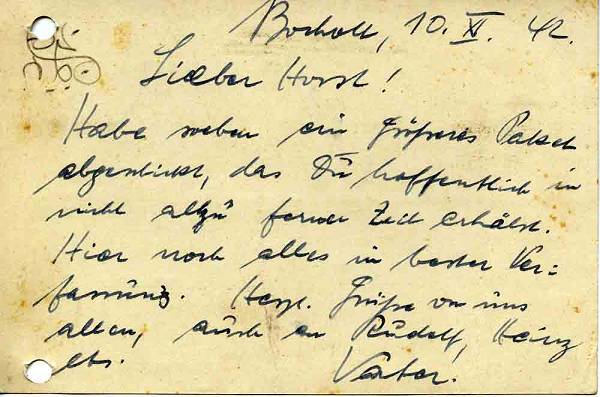 Bocholt, 10. XI. 42.
Lieber Horst!
Habe soeben ein größeres Paket
abgeschickt, das Du hoffentlich in
nicht allzu ferner Zeit erhälst.
Hier noch alles in bester Ver=
fassung. Herzl. Grüße von uns
allen, auch an Rudolf, Heinz
etc. Vater.